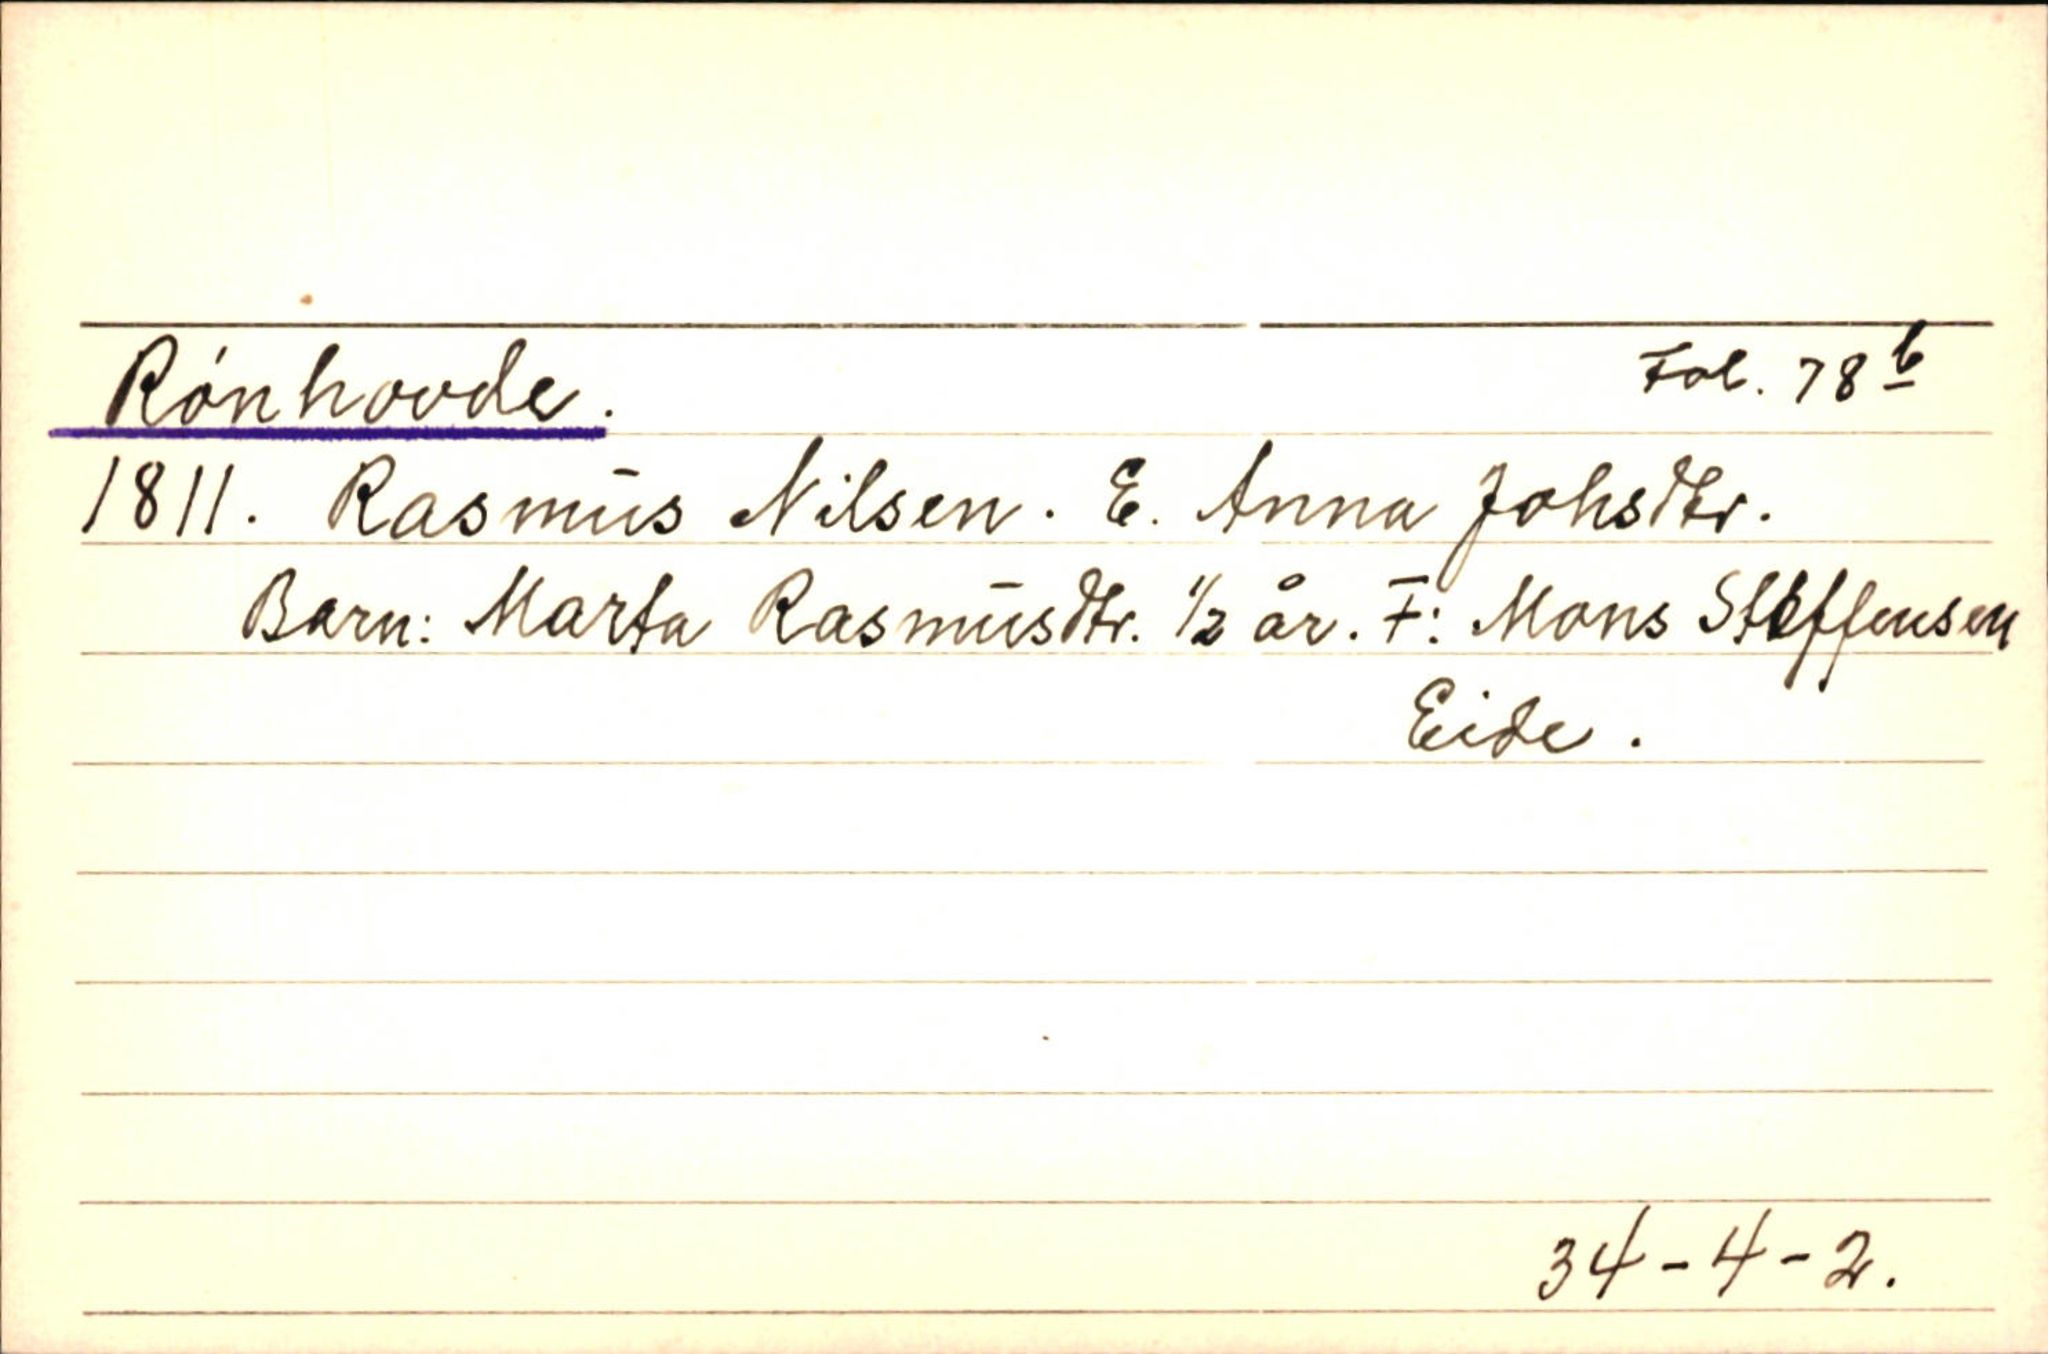 Rónhovde. Fol. 78 b
1811. Rasmus Nilsen. E. Anna Johsdtr.
Barn: Marta Rasmusdtr. 1/2 år. F: Mons Steffensen
Eide.
34-4-2.